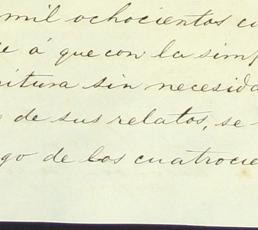 mil ochocientos cu
e á que con la simp
ritura sin necesida
de sus relatos, se
go de los cuatrocie